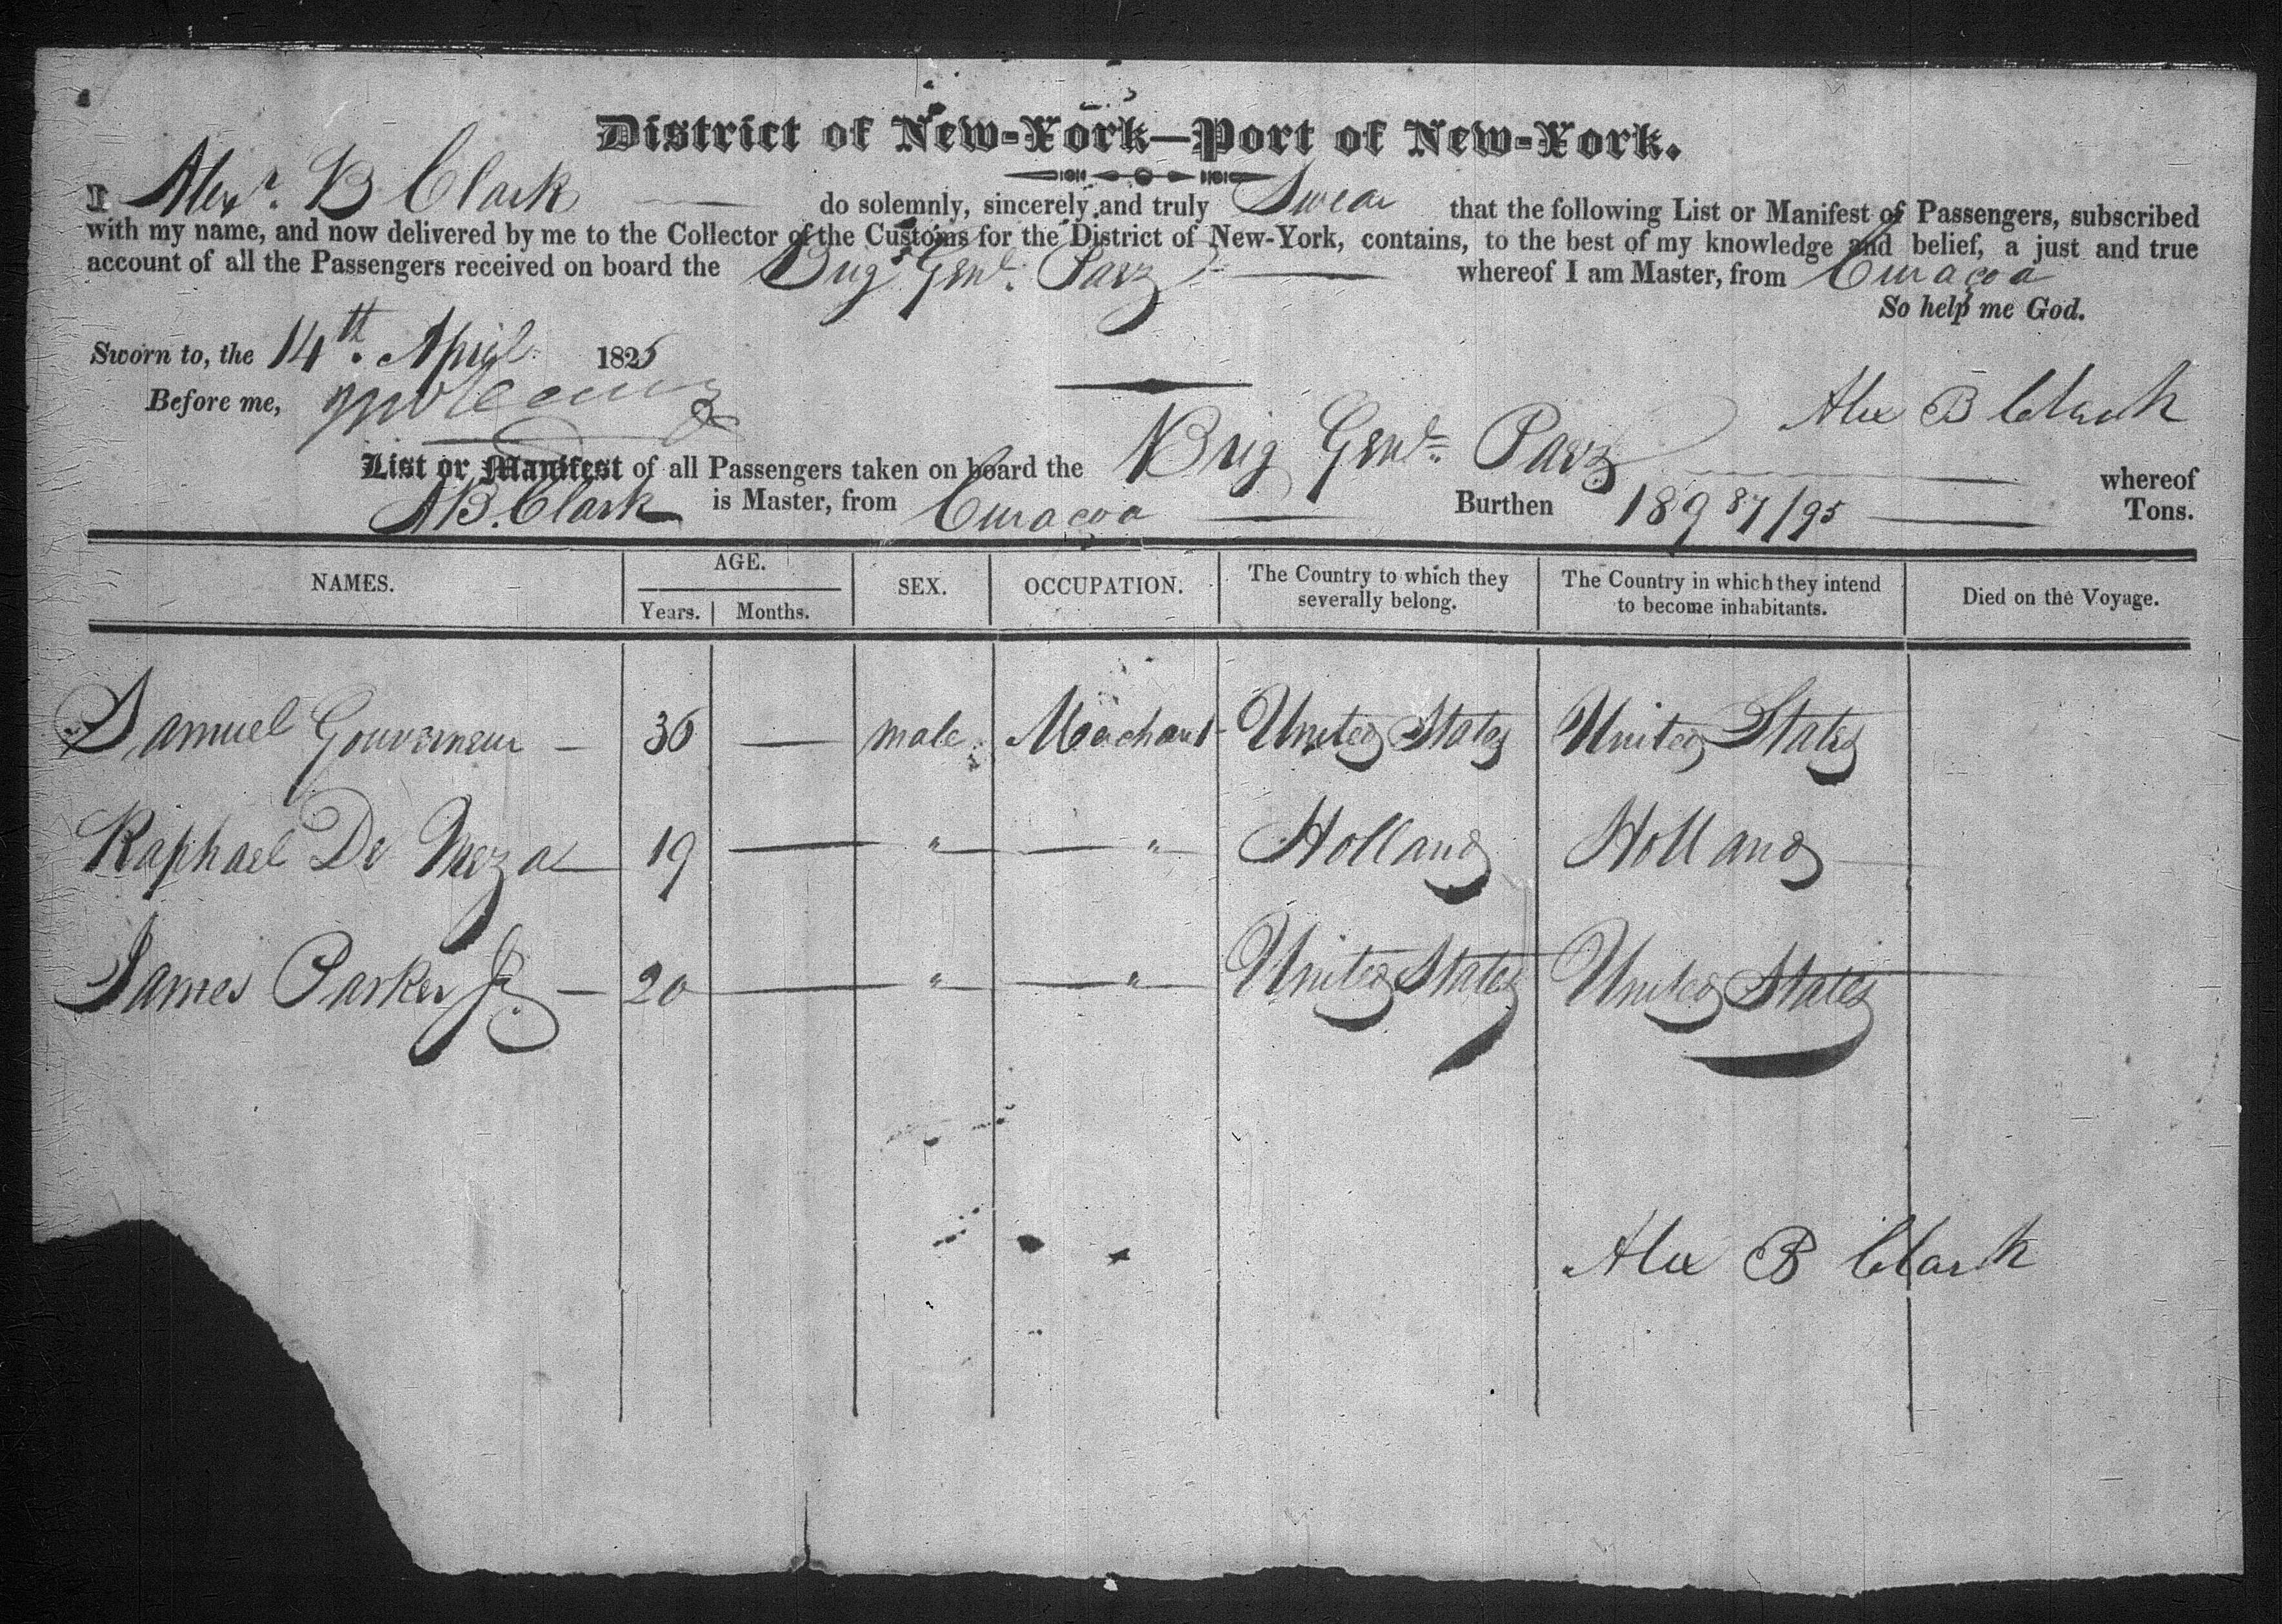 District of New-York—Port of New-York.
I Alexr. B Clark do solemnly, sincerely and truly Swear that the following List or Manifest of Passengers, subscribed
with my name, and now delivered by me to the Collector of the Customs for the District of New-York, contains, to the best of my knowledge and belief, a just and true
account of all the Passengers received on board the Brig Genl. Paez whereof I am Master, from Curaçoa
So help me God.
Sworn to, the 14th. April 1825
Before me,
Alex B Clark
List or Manifest of all Passengers taken on board the Brig Genl. Paez whereof
A B. Clark is Master, from Curaçoa Burthen 189 87/95 Tons.
NAMES. AGE. SEX. OCCUPATION. The Country to which they severally belong. The Country in which they intend to become inhabitants. Died on the Voyage.
Years. Months.
Samuel Gouverneur — 36 — male Merchant United States United States
Raphael De Meza 19 — " — " — Holland Holland
James Parker Jr — 20 — " — " — United States United States
Alex B Clark